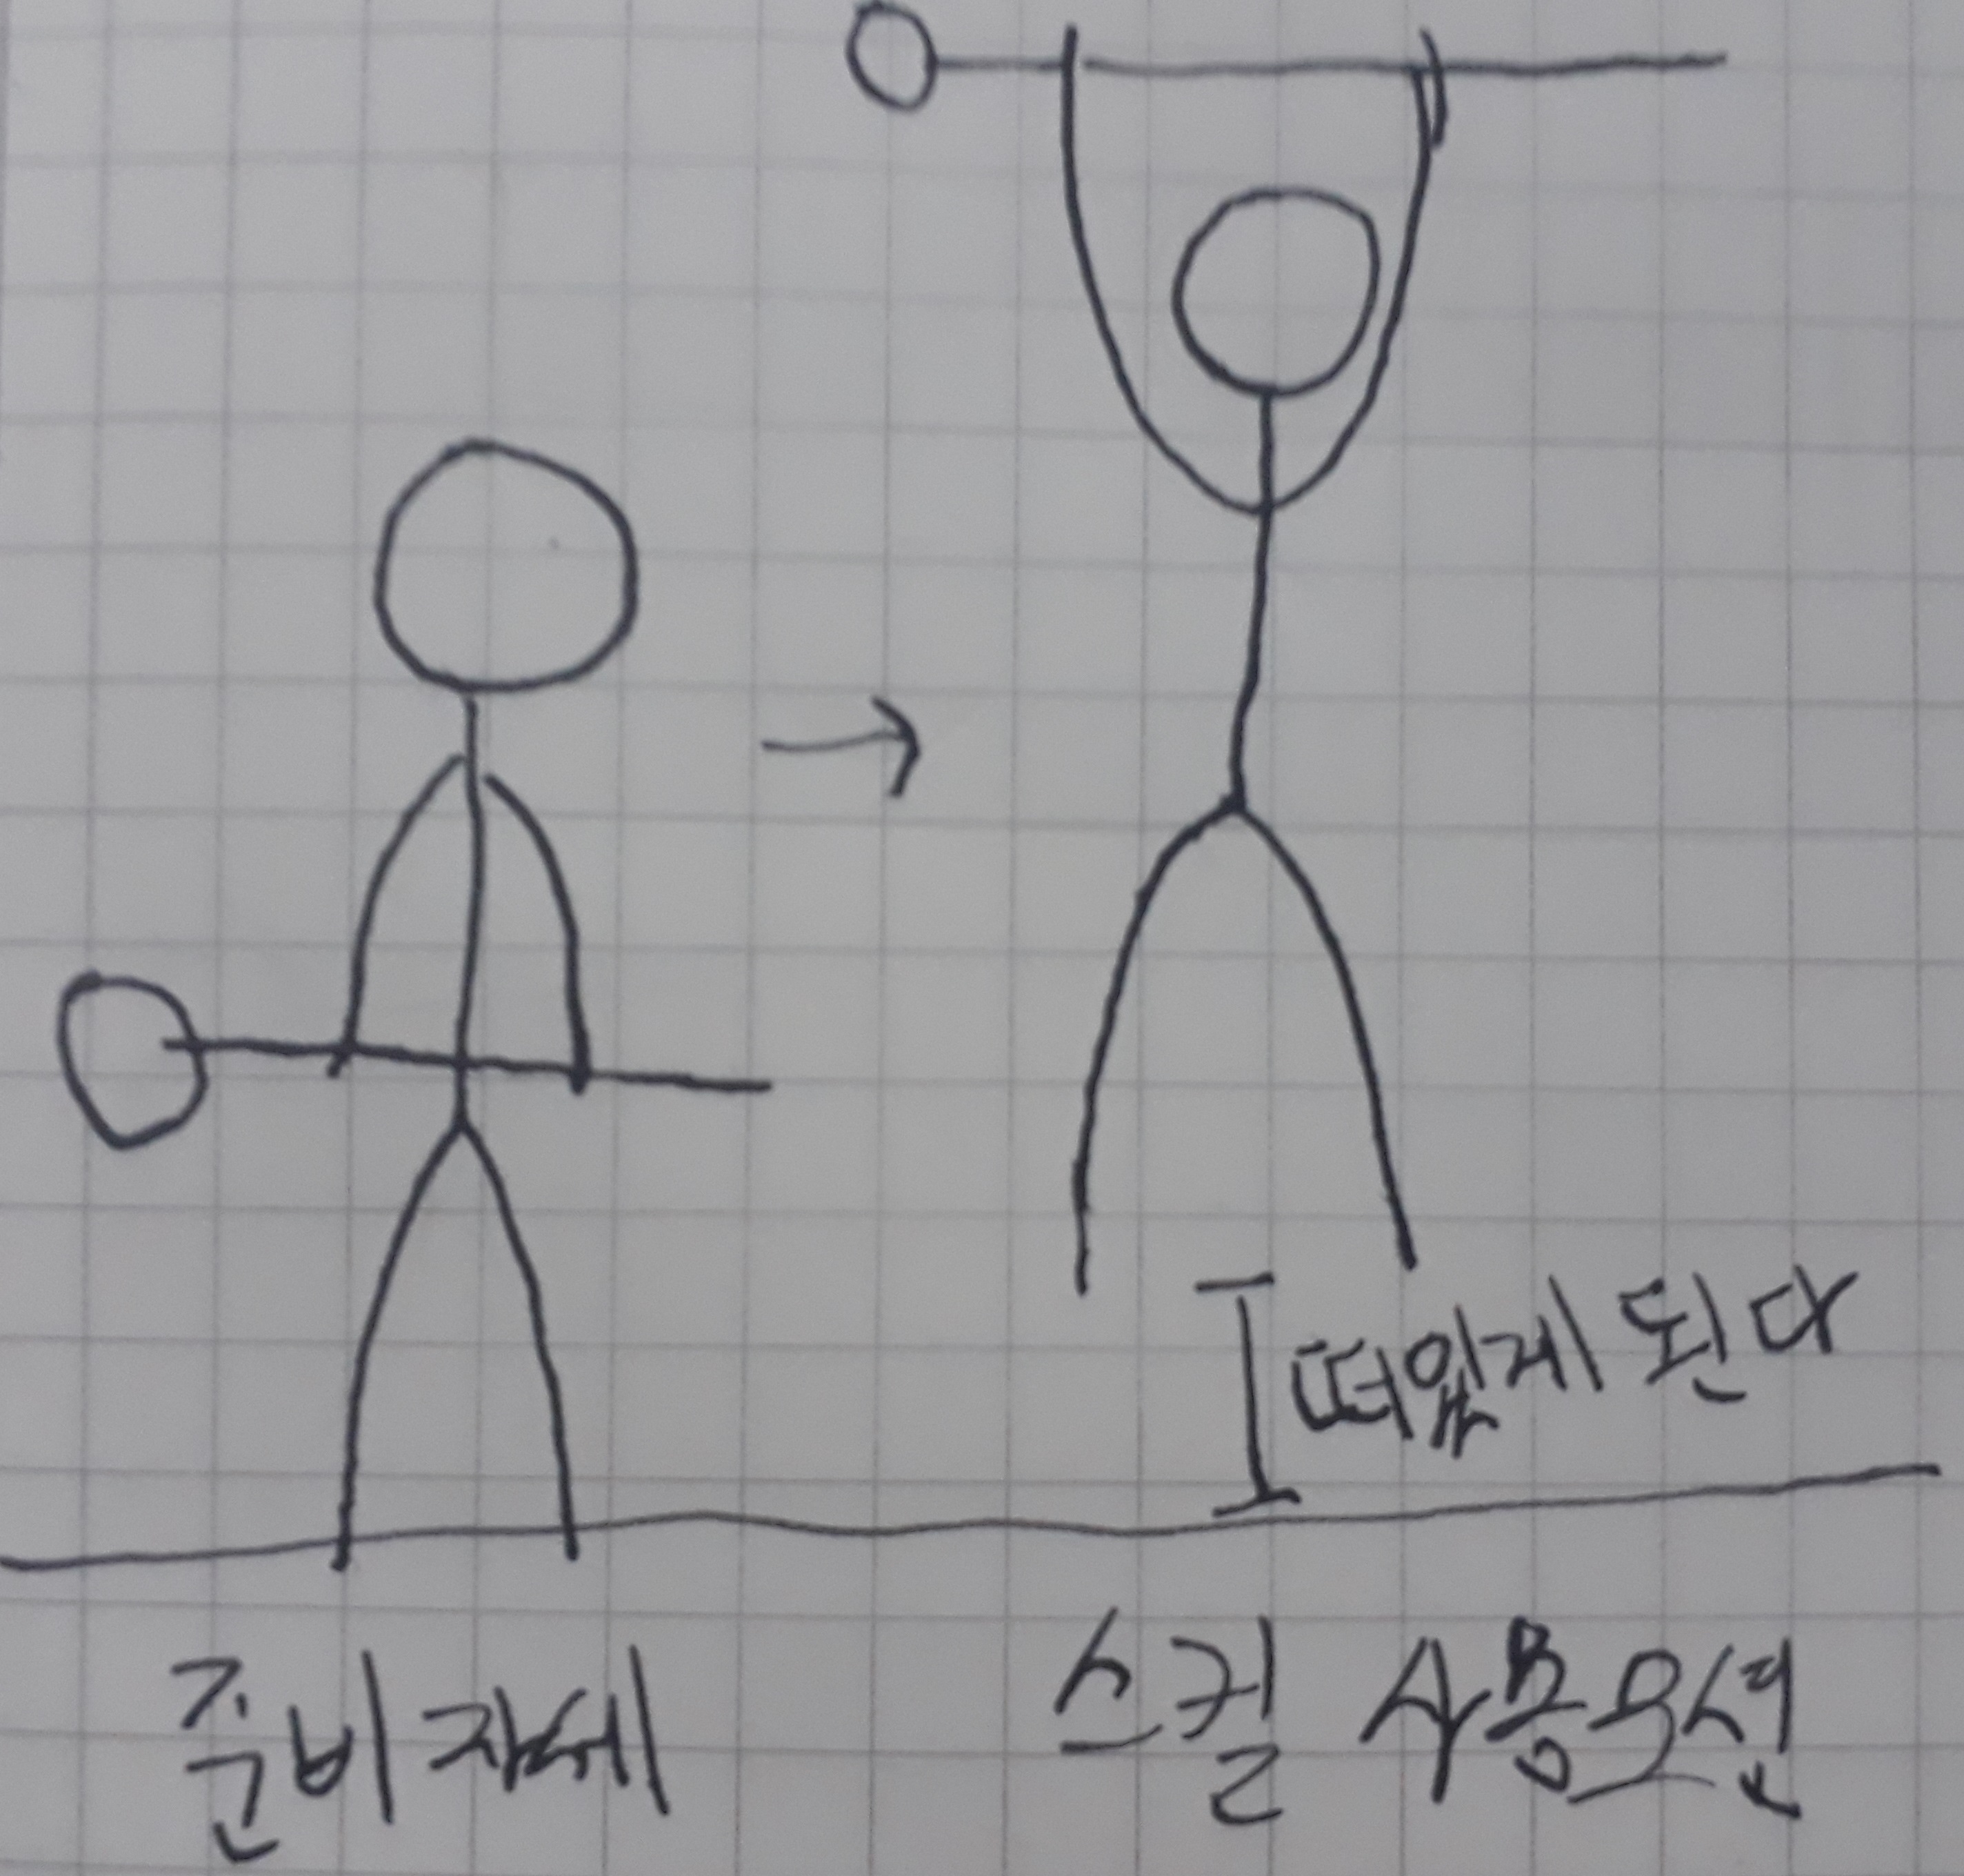 떠있게 된다
준비자세
스킬 사용모션